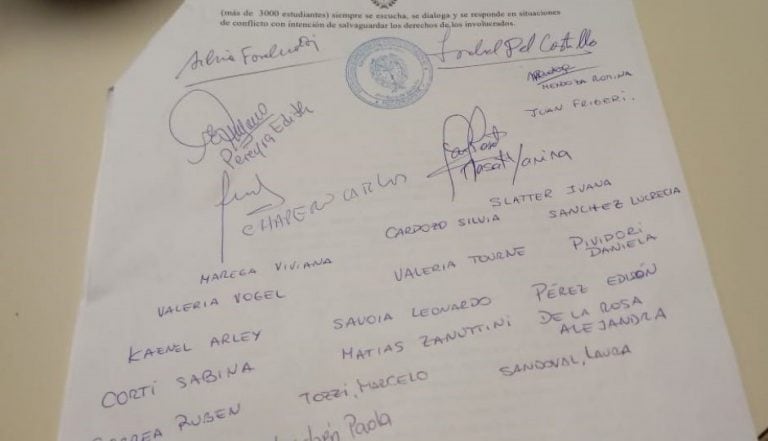 (más de 3000 estudiantes) siempre se escucha, se dialoga y se responde en situaciones
de conflicto con intención de salvaguardar los derechos de los involucrados.
Silvia
Isabel Del Castillo
MENDOZA ROMINA
JUAN FRIDERI.
Pereyra Edith
Yanina
CHAPERO CARLOS
SLATTER IVANA
MAREGA VIVIANA CARDOZO SILVIA SANCHEZ LUCRECIA
VALERIA VOGEL VALERIA TOURNE PIVIDORI
DANIELA
KAENEL ARLEY SAVOIA LEONARDO PÉREZ EDISÓN
CORTI SABINA MATIAS ZANUTTINI DE LA ROSA
ALEJANDRA
RUBEN TOZZI, MARCELO SANDOVAL, LAURA
Paola